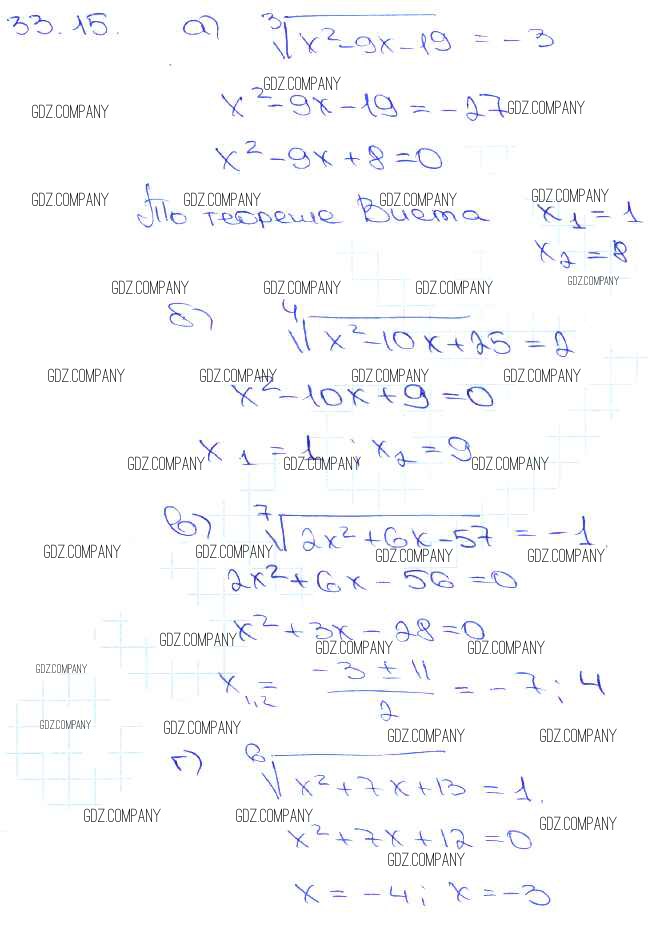 33.15. а) ∛(x²-9x-19) = -3
GDZ.COMPANY
x²-9x-19 = -27
GDZ.COMPANY GDZ.COMPANY
x²-9x+8=0
GDZ.COMPANY GDZ.COMPANY GDZ.COMPANY GDZ.COMPANY
По теореме Виета x₁ = 1
x₂ = 8
GDZ.COMPANY GDZ.COMPANY GDZ.COMPANY GDZ.COMPANY
б) ⁴√(x²-10x+25) = 2
GDZ.COMPANY GDZ.COMPANY GDZ.COMPANY GDZ.COMPANY
x²-10x+9=0
x₁ = 1 ; x₂ = 9
GDZ.COMPANY GDZ.COMPANY GDZ.COMPANY
в) ⁷√(2x²+6x-57) = -1
GDZ.COMPANY GDZ.COMPANY GDZ.COMPANY GDZ.COMPANY
2x²+6x-56=0
x²+3x-28=0
GDZ.COMPANY GDZ.COMPANY GDZ.COMPANY
GDZ.COMPANY
x₁,₂ = (-3±11)/2 = -7; 4
GDZ.COMPANY GDZ.COMPANY GDZ.COMPANY GDZ.COMPANY
г) ⁶√(x²+7x+13) = 1.
GDZ.COMPANY GDZ.COMPANY GDZ.COMPANY
x²+7x+12=0
GDZ.COMPANY
x = -4; x = -3